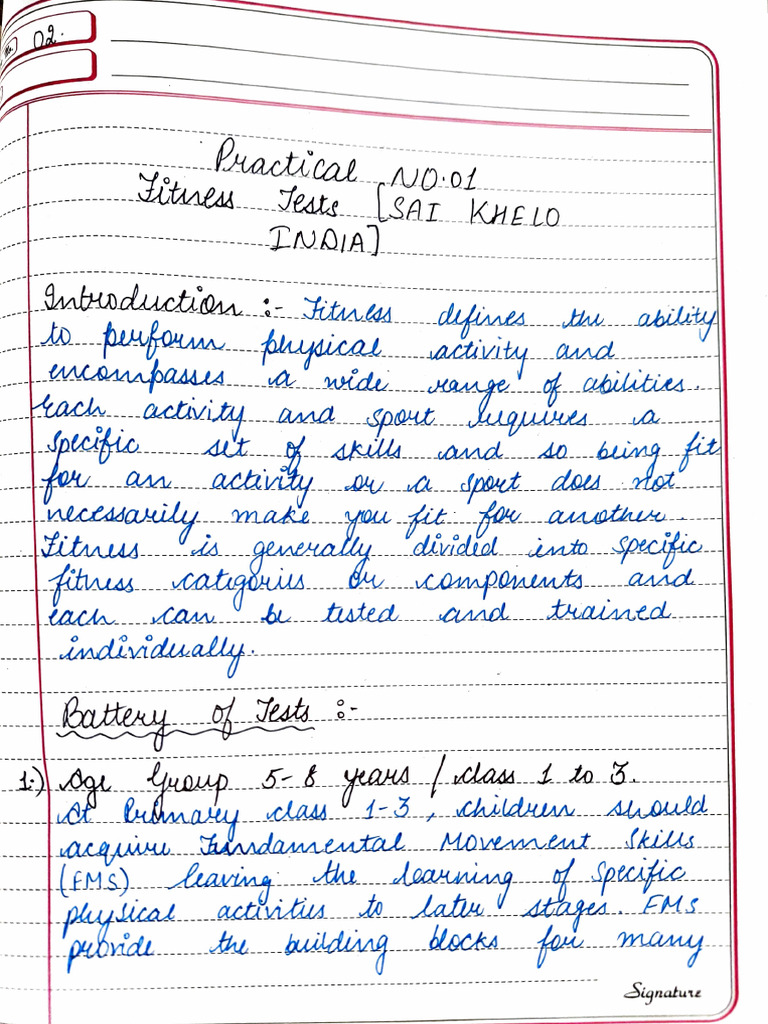 No. 02.
Practical NO.01
Fitness Tests [SAI KHELO
INDIA]
Introduction :- Fitness defines the ability
to perform physical activity and
encompasses a wide range of abilities.
Each activity and sport requires a
specific set of skills and so being fit
for an activity or a sport does not
necessarily make you fit for another.
Fitness is generally divided into specific
fitness categories or components and
each can be tested and trained
individually.
Battery of Tests :-
1:) Age Group 5-8 years / class 1 to 3.
At Primary class 1-3, children should
acquire Fundamental Movement Skills
(FMS) leaving the learning of specific
physical activities to later stages. FMS
provide the building blocks for many
Signature